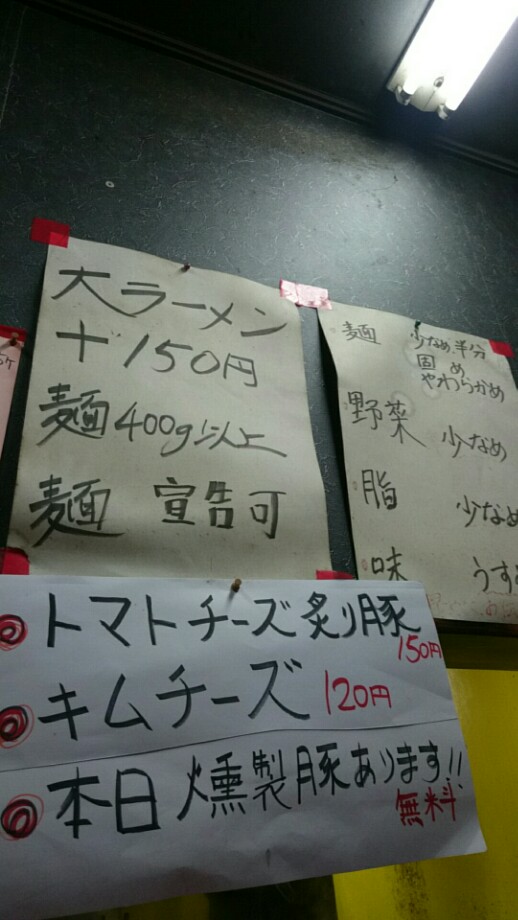 大ラーメン
+150円
麺400g以上
麺 宣告可
麺 少なめ、半分
固め
やわらかめ
野菜 少なめ
脂 少なめ
味 うす
トマトチーズ炙り豚
150円
キムチーズ 120円
本日燻製豚あります!!
無料